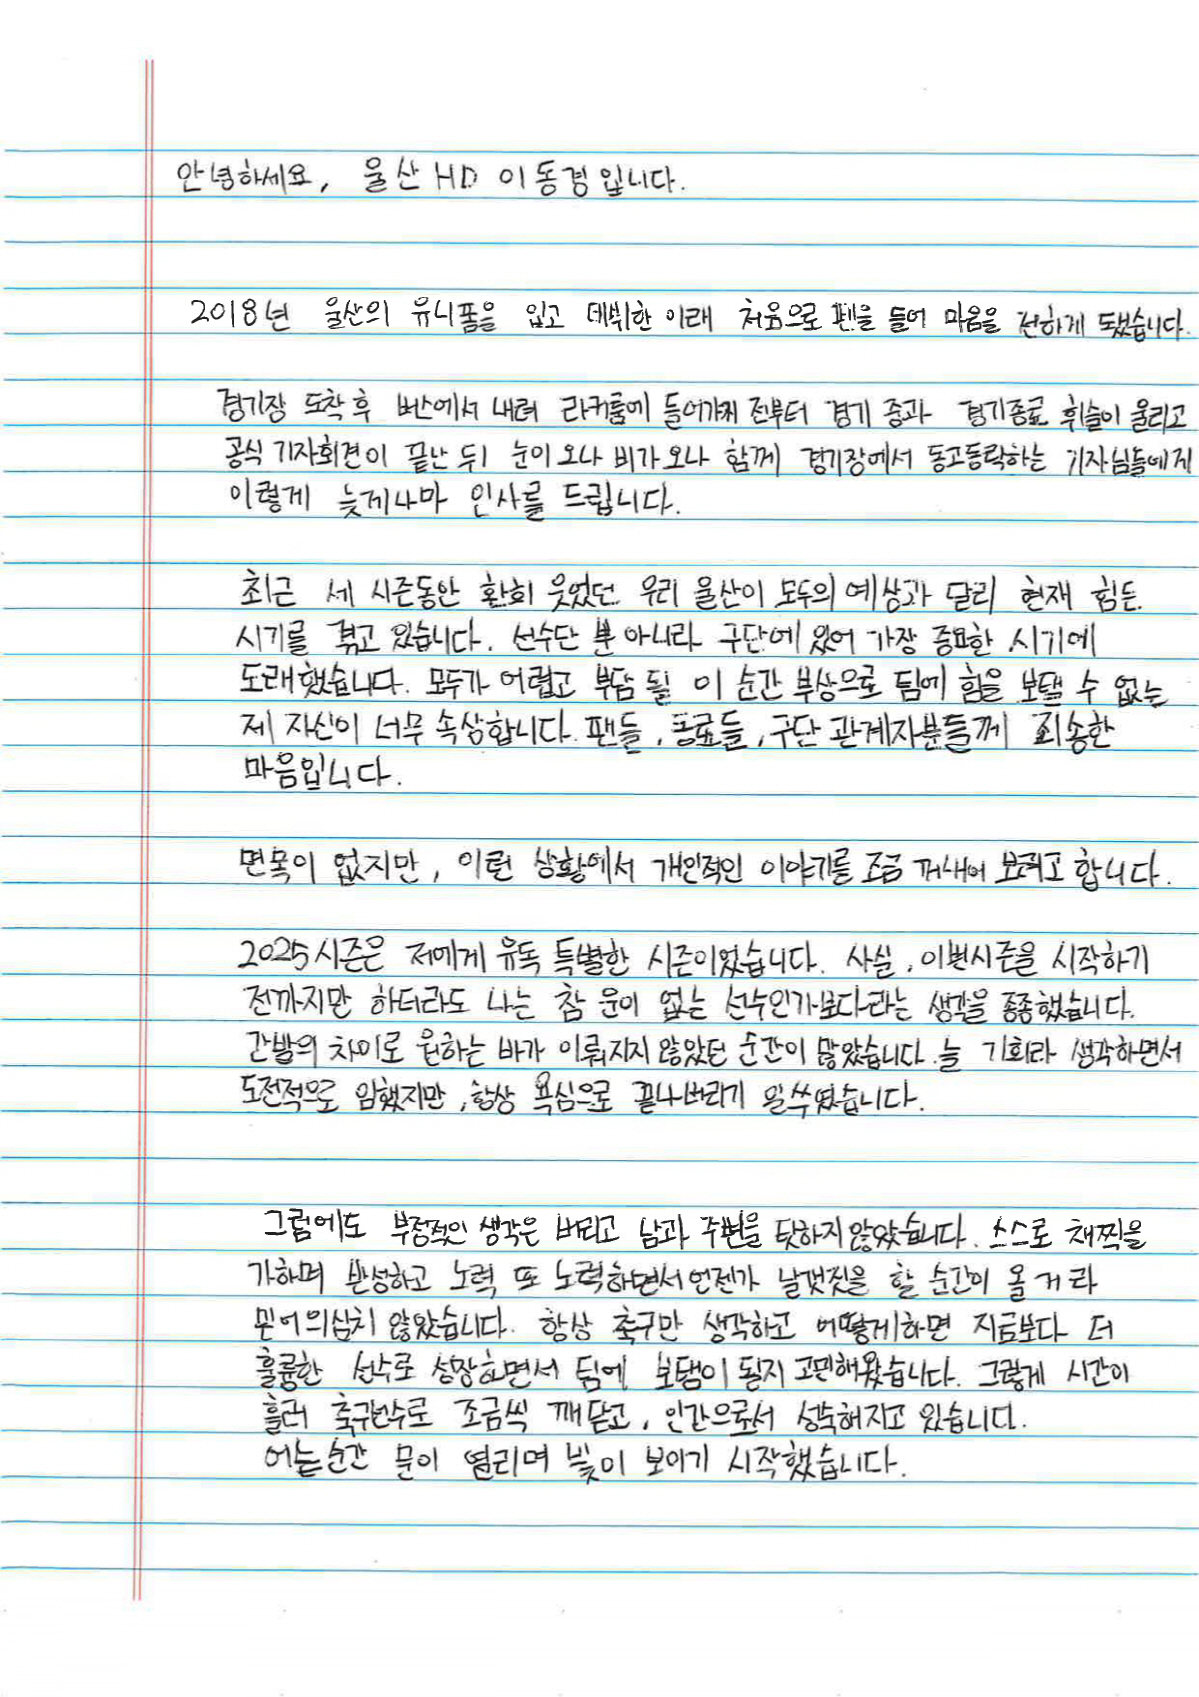 안녕하세요, 울산 HD 이동경입니다.
2018년 울산의 유니폼을 입고 데뷔한 이래 처음으로 펜을 들어 마음을 전하게 됐습니다.
경기장 도착 후 버스에서 내려 라커룸에 들어가기 전부터 경기 중과 경기종료 휘슬이 울리고
공식 기자회견이 끝난 뒤 눈이오나 비가오나 함께 경기장에서 동고동락하는 기자님들에게
이렇게 늦게나마 인사를 드립니다.
최근 세 시즌동안 환희 웃었던 우리 울산이 모두의 예상과 달리 현재 힘든
시기를 겪고 있습니다. 선수단 뿐 아니라 구단에 있어 가장 중요한 시기에
도래했습니다. 모두가 어렵고 부담 될 이 순간 부상으로 팀에 힘을 보탤 수 없는
제 자신이 너무 속상합니다. 팬들, 동료들, 구단 관계자분들께 죄송한
마음입니다.
면목이 없지만, 이런 상황에서 개인적인 이야기를 조금 꺼내어 보려고 합니다.
2025시즌은 저에게 유독 특별한 시즌이었습니다. 사실, 이번시즌을 시작하기
전까지만 하더라도 나는 참 운이 없는 선수인가보다라는 생각을 종종했습니다.
간발의 차이로 원하는 바가 이뤄지지 않았던 순간이 많았습니다. 늘 기회라 생각하면서
도전적으로 임했지만, 항상 욕심으로 끝나버리기 일쑤였습니다.
그럼에도 부정적인 생각은 버리고 남과 주변을 탓하지 않았습니다. 스스로 채찍을
가하며 반성하고 노력 또 노력하면서 언젠가 날갯짓을 할 순간이 올 거라
믿어 의심치 않았습니다. 항상 축구만 생각하고 어떻게하면 지금보다 더
훌륭한 선수로 성장하면서 팀에 보탬이 될지 고민해왔습니다. 그렇게 시간이
흘러 축구선수로 조금씩 깨닫고, 인간으로서 성숙해지고 있습니다.
어느순간 문이 열리며 빛이 보이기 시작했습니다.